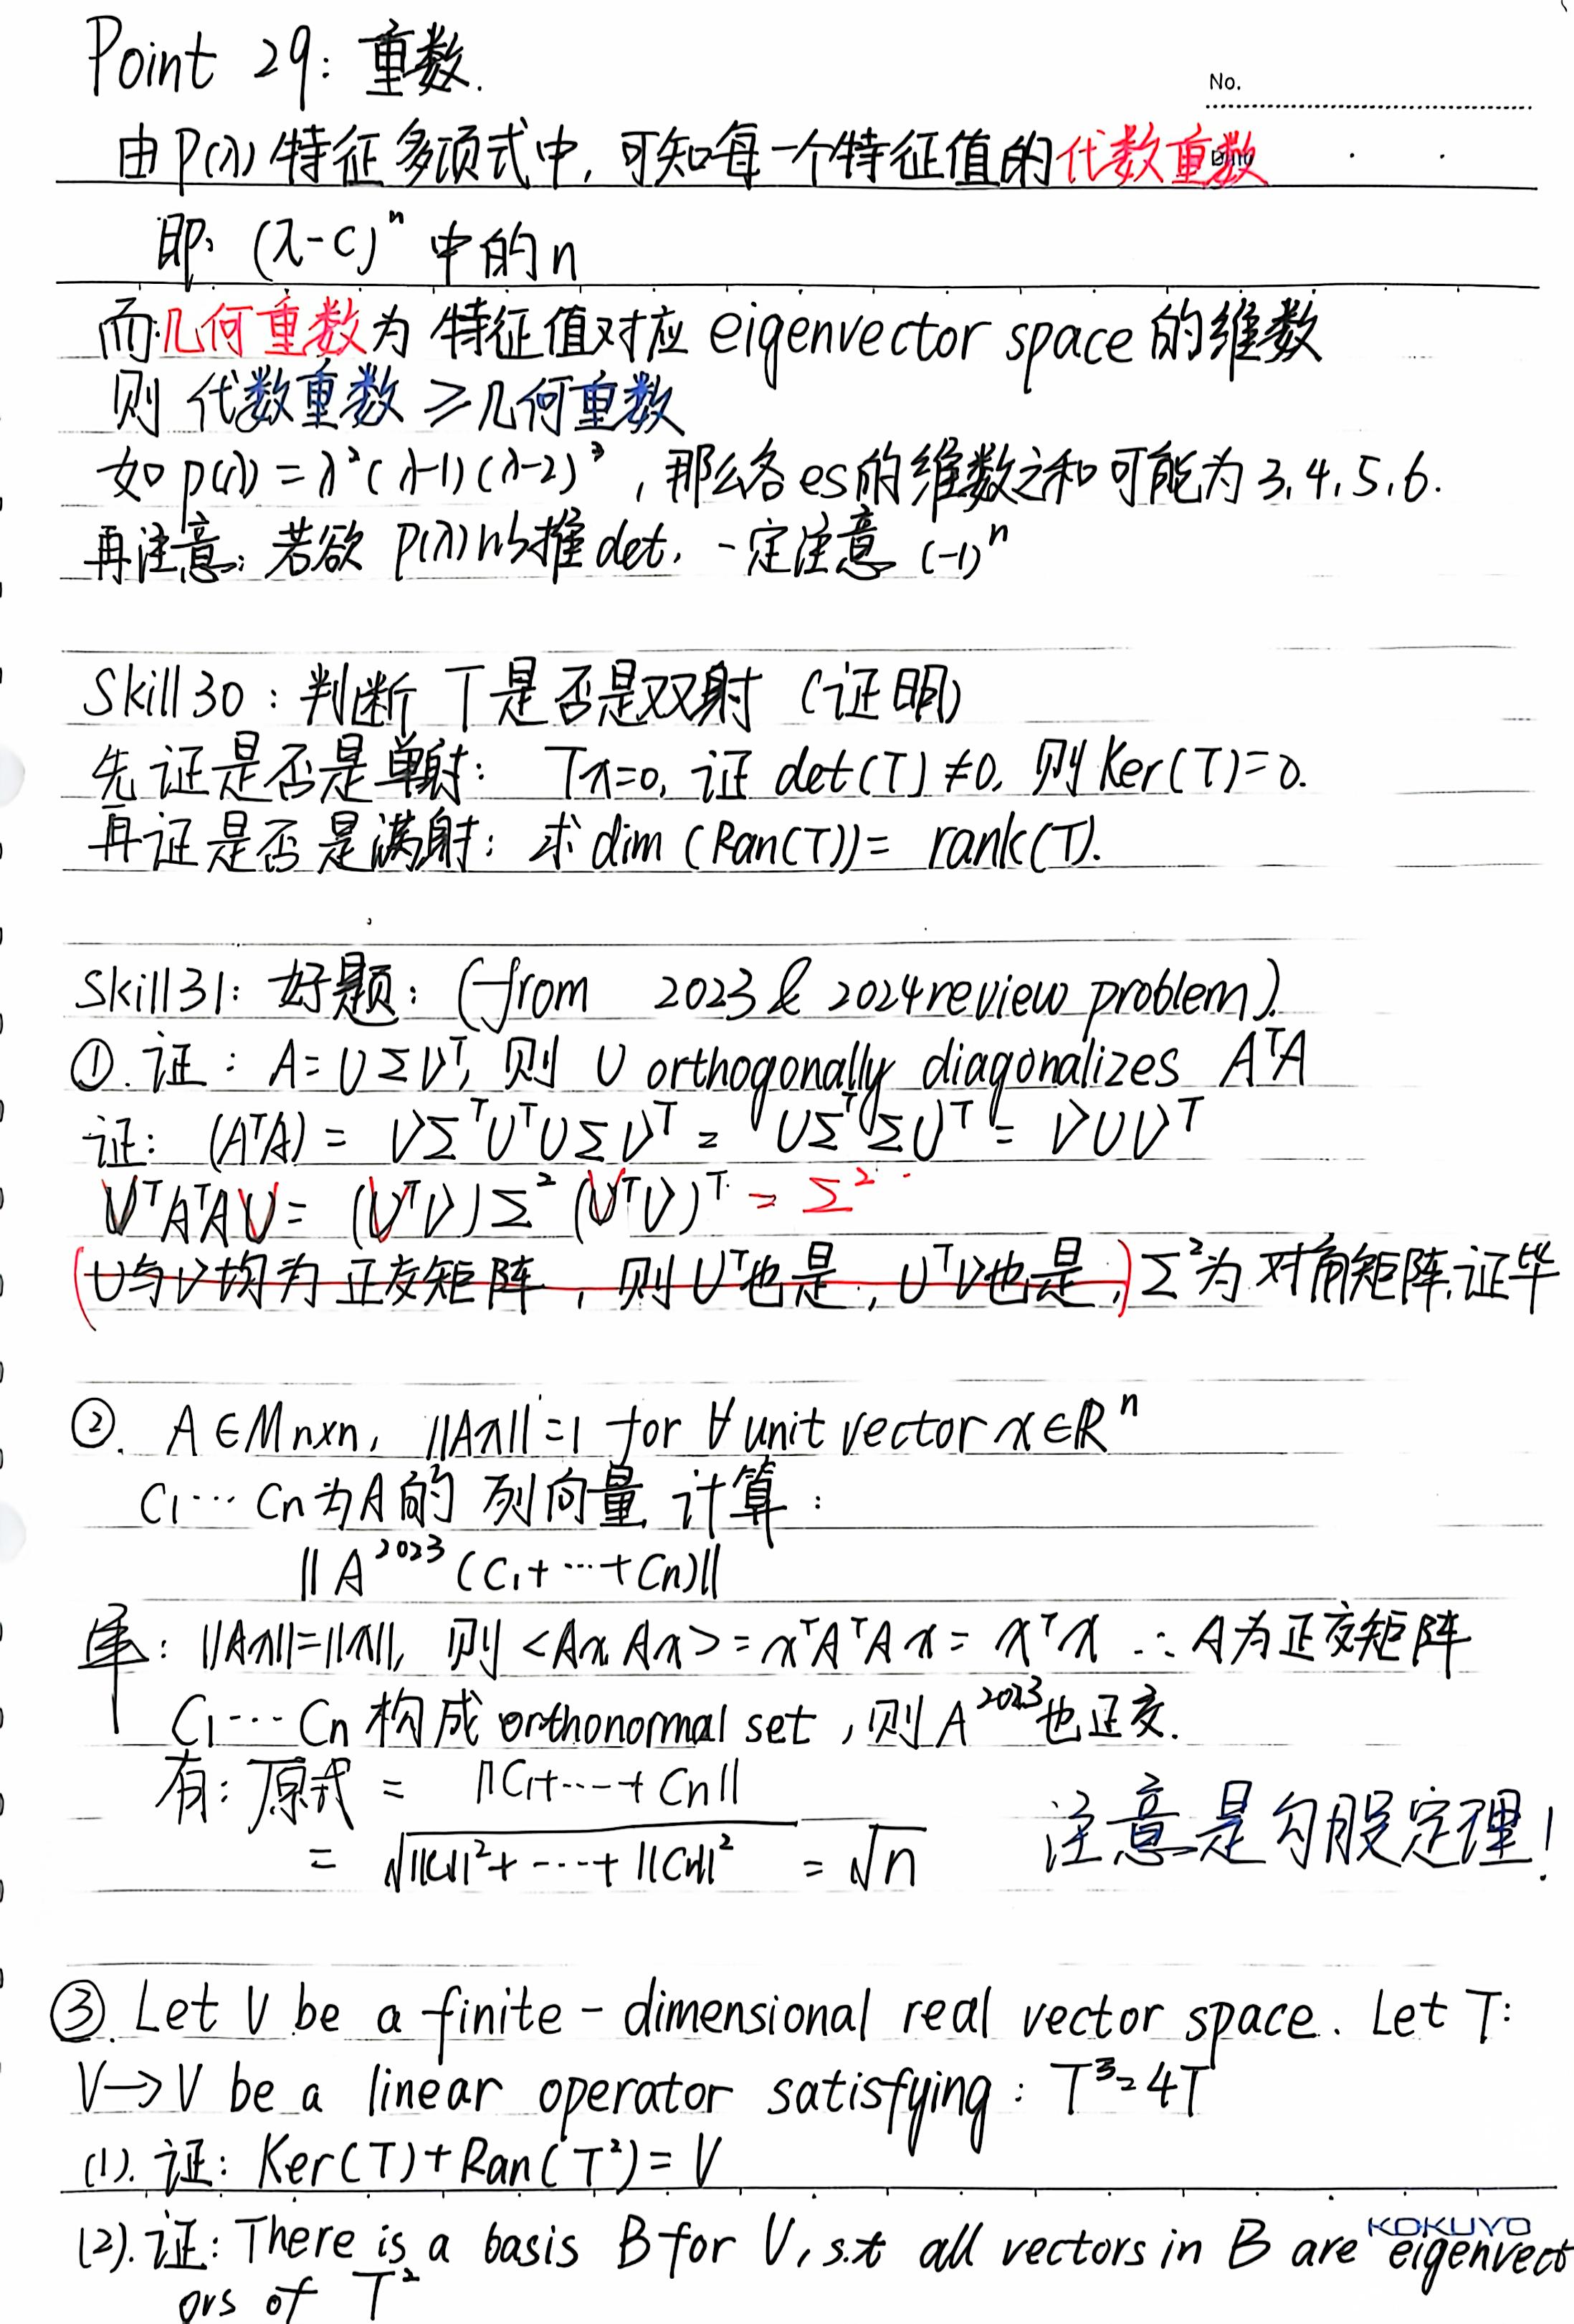 Point 29: 重数.
No.
由P(λ)特征多项式中,可知每一个特征值的代数重数
即: (λ-c)ⁿ 中的n
而几何重数为 特征值对应 eigenvector space 的维数
则 代数重数 ≥几何重数
如 p(λ) = λ²(λ-1)(λ-2)³ , 那么各es的维数之和可能为 3,4,5,6.
再注意: 若欲 P(λ) 推det, 一定注意 (-1)ⁿ
Skill 30 : 判断 T是否是双射 (证明)
先证是否是单射: Tx=0, 证 det(T)≠0, 则Ker(T)=0.
再证是否是满射: 求dim (Ran(T))= rank(T).
Skill31: 好题: (from 2023 & 2024 review problem).
①. 证: A=UΣVᵀ, 则 U orthogonally diagonalizes AᵀA
证: (AᵀA) = VΣᵀUᵀUΣVᵀ = UΣᵀΣUᵀ = VUVᵀ
VᵀAᵀAV = (VᵀV)Σ²(VᵀV)ᵀ = Σ²
(U与V均为正交矩阵, 则Uᵀ也是, UᵀV也是,) Σ²为对角矩阵.证毕
②. A∈Mn×n, ||Ax||=1 for ∀ unit vector x∈ℝⁿ
C1⋯Cn为A的 列向量, 计算:
||A²⁰²³(C1+⋯+Cn)||
解: ||Ax||=||x||, 则<Ax,Ax>=xᵀAᵀAx= xᵀx ∴A为正交矩阵
C1⋯Cn 构成 orthonormal set, 则A²⁰²³也正交.
有: 原式 = ||C1+⋯+Cn||
= √||C1||²+⋯+||Cn||² = √n 注意是勾股定理!
③. Let V be a finite-dimensional real vector space. Let T:
V→V be a linear operator satisfying: T³=4T
(1). 证: Ker(T)+Ran(T²)=V
(2). 证: There is a basis B for V, s.t all vectors in B are eigenvect
KOKUYO
ors of T²